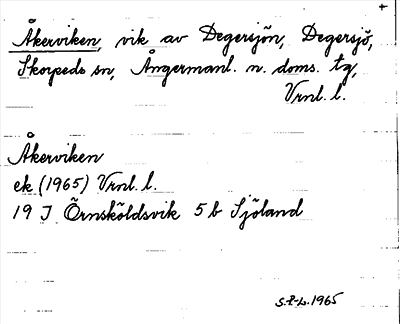 Åkerviken, vik av Degersjön, Degersjö,
Skorpeds sn, Ångermanl. n. doms. tg,
Vrnl. l.
Åkerviken
ek (1965) Vrnl. l.
19 J Örnsköldsvik 5 b Sjöland
S.Z-L. 1965